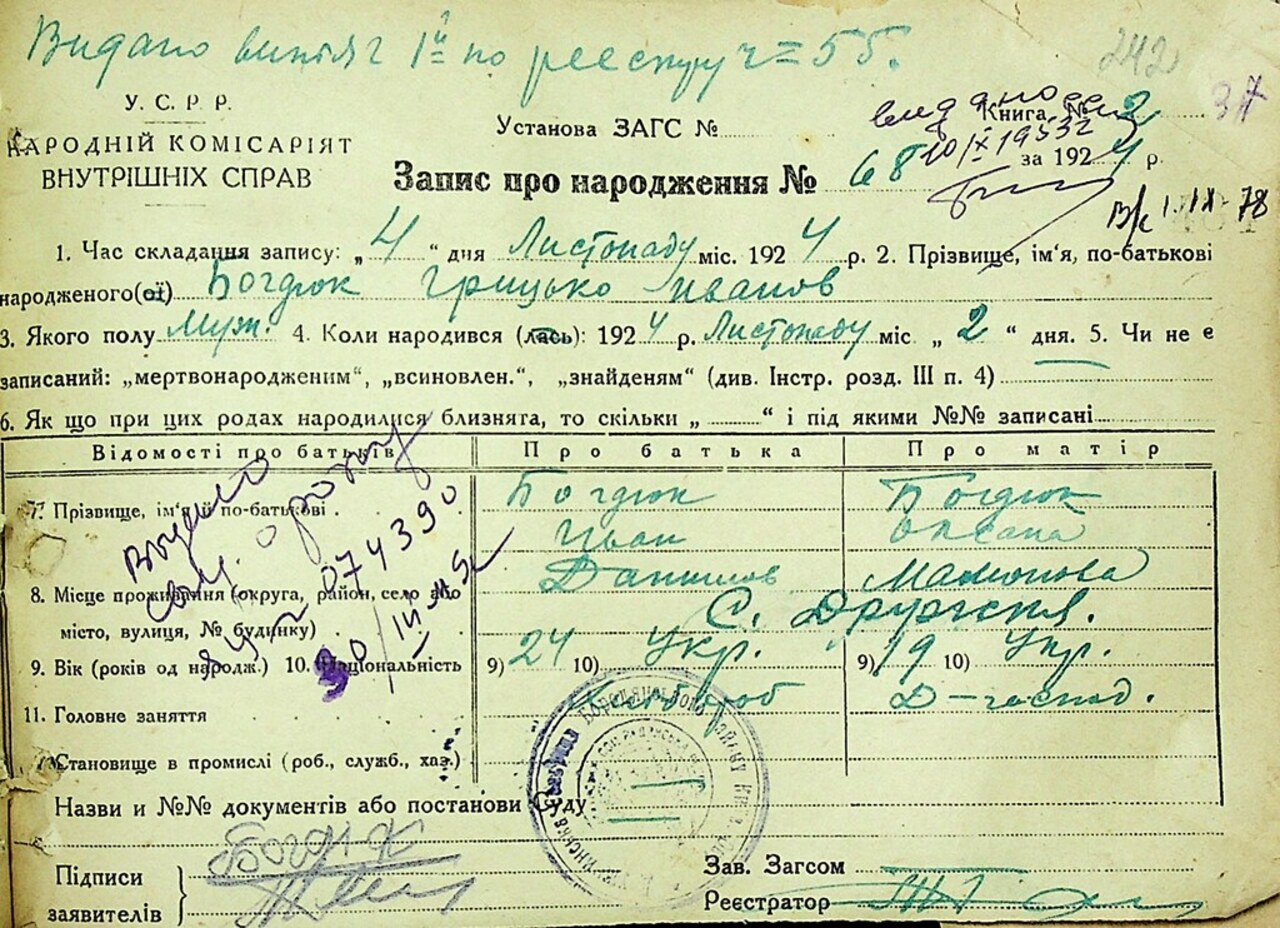 Видано витяг 1й по реєстру ч = 55.
242
37
У. С. Р. Р.
НАРОДНІЙ КОМІСАРІЯТ
ВНУТРІШНІХ СПРАВ
Установа ЗАГС №
Книга № 2
10/IX 1953
Запис про народження № 68
за 1924 р.
1. IX-78
1. Час складання запису: „4“ дня Листопаду міс. 1924 р. 2. Прізвище, ім'я, по-батькові
народженого(ої) Богдюк Грицько Иванов
3. Якого полу Муж. 4. Коли народився (лась): 1924 р. Листопаду міс „2“ дня. 5. Чи не є
записаний: „мертвонародженим“, „всиновлен.“, „знайденям“ (див. Інстр. розд. III п. 4)
6. Як що при цих родах народилися близнята, то скільки „ “ і під якими №№ записані
Відомості про батьків Про батька Про матір
7. Прізвище, ім'я й по-батькові Богдюк Иван Данилов Богдюк Оксана
Видано
074390
8. Місце проживання (округа, район, село або
місто, вулиця, № будинку) С.
9. Вік (років од народж.) 10. Національність 9) 24 10) Укр. 9) 19 10) Укр.
11. Головне заняття Д-господ.
Становище в промислі (роб., служб., хаз.)
Назви и №№ документів або постанови Суду
Підписи
заявителів
Богдюк
Зав. Загсом
Реєстратор